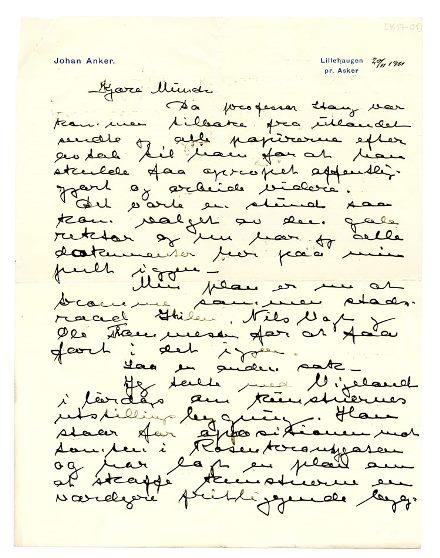 Johan Anker.
Lillehaugen
pr. Asker
29/11 1921
Kjære Munch
Da professor Haug var
kommen tilbake fra utlandet
sendte jeg alle papirerne efter
avtale til ham for at han
skulde faa opropet offentlig-
gjort og arbeide videre.
Det varte en stund saa
kom valget av den gale
rektor og nu har jeg alle
dokumenter her paa min
pult igjen -
Min plan er nu at
komme sammen stads-
raad Nils og
Ole for at faa
fart i det igjen.
Saa en anden sak -
Jeg talte med Vigeland
i lørdags om kunstnernes
utstillingsbygning. Han
staar for oppositionen mot
tomten i Rosenkrantzgaten
og har lagt en plan om
at skaffe kunstnerne en
værdigere fritliggende byg-